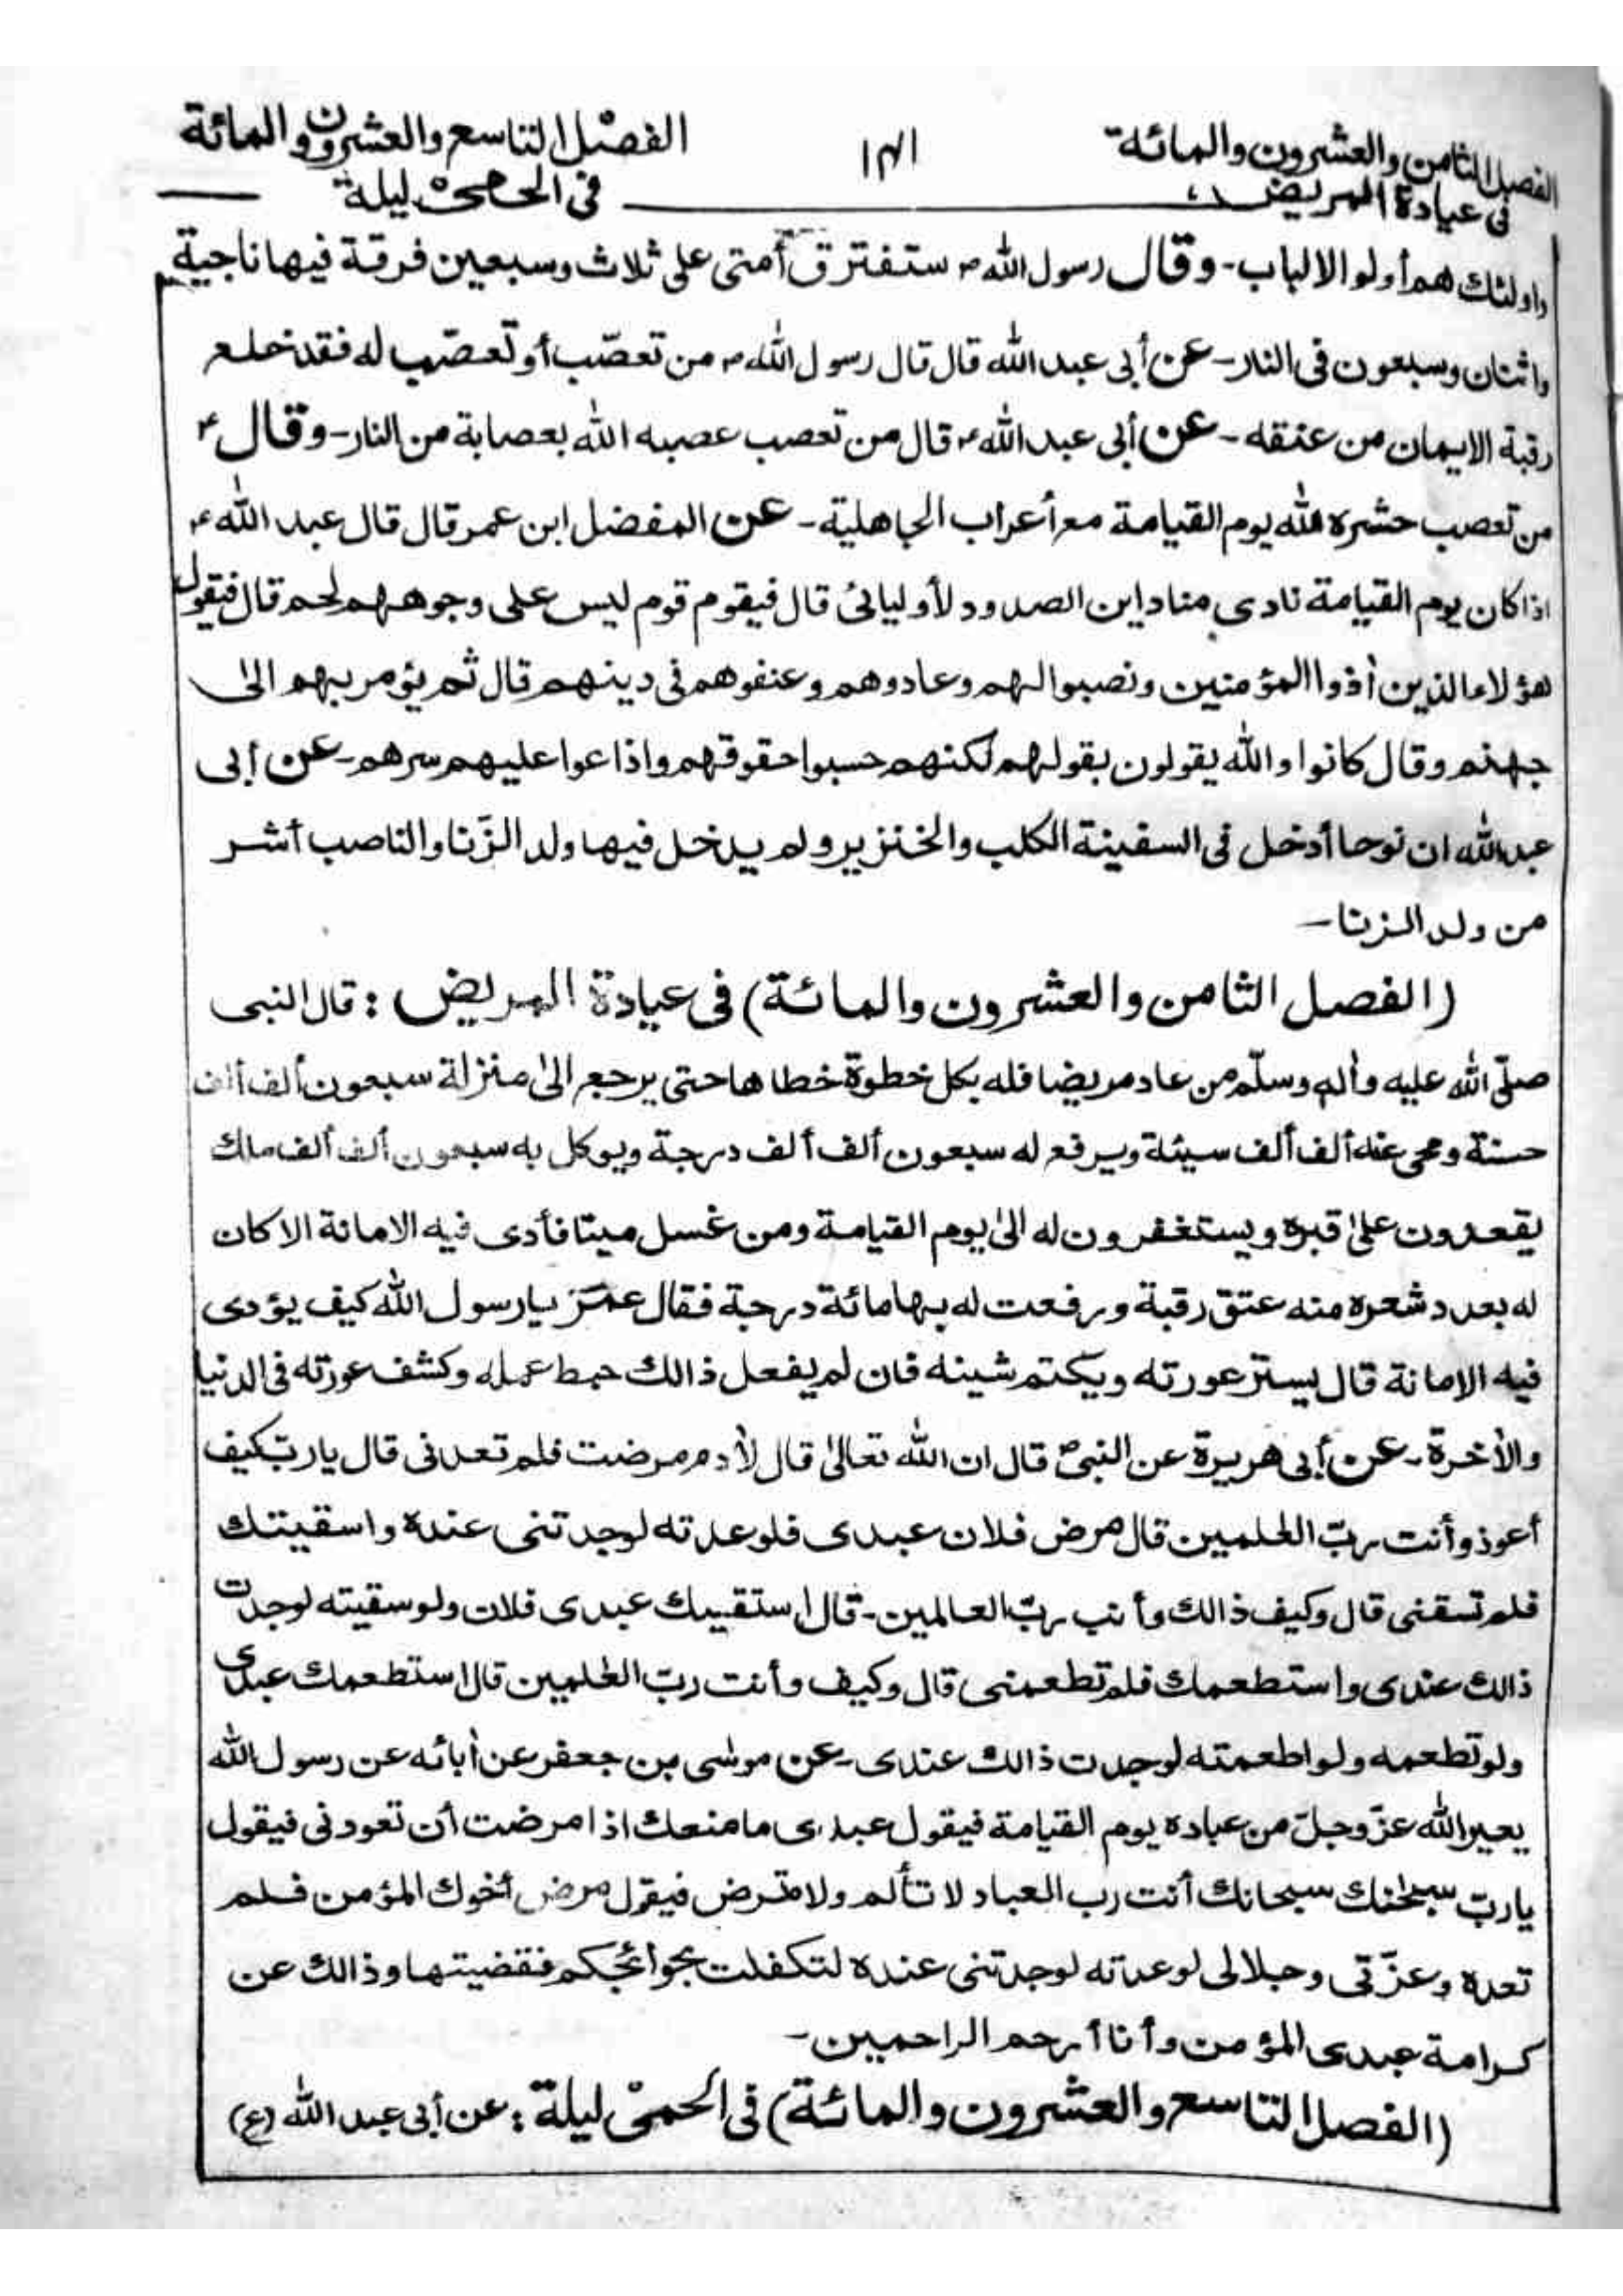 الفصل الثامن والعشرون والمائة
في عيادة المريض
١٨١
الفصل التاسع والعشرون والمائة
في الحمىٰ ليلة
واولئك هم أولو الالباب - وقال رسول الله ص ستفترق أمتى على ثلاث وسبعين فرقة فيها ناجية
واثنان وسبعون فى النار - عن أبى عبد الله قال قال رسول الله ص من تعصّب أو تعصّب له فقد خلع
رقبة الايمان من عنقه - عن أبى عبد الله ع قال من تعصب عصبه الله بعصابة من النار - وقال ع
من تعصب حشره الله يوم القيامة مع أعراب الجاهلية - عن المفضل ابن عمر قال قال عبد الله ع
اذا كان يوم القيامة نادى مناد اين الصدود لأوليائى قال فيقوم قوم ليس على وجوههم لحم قال فيقول
هؤلاء الذين أذوا المؤمنين ونصبوا لهم وعادوهم وعنفوهم فى دينهم قال ثم يؤمر بهم الىٰ
جهنم وقال كانوا والله يقولون بقولهم لكنهم حسبوا حقوقهم واذاعوا عليهم سرهم - عن أبى
عبد الله ان نوحا أدخل فى السفينة الكلب والخنزير ولم يدخل فيها ولد الزّنا والناصب أشر
من ولد الزنا -
(الفصل الثامن والعشرون والمائة) فى عيادة المريض : قال النبى
صلّى الله عليه وأله وسلّم من عاد مريضا فله بكل خطوة خطاها حتى يرجع الىٰ منزلة سبعون ألف ألف
حسنة ومحى عنه ألف ألف سيئة ويرفع له سبعون ألف ألف درجة ويوكل به سبعون ألف ألف ملك
يقعدون علىٰ قبره ويستغفرون له الىٰ يوم القيامة ومن غسل ميتا فأدى فيه الامانة الا كان
له بعدد شعره منه عتق رقبة ورفعت له بها مائة درجة فقال عمر يا رسول الله كيف يؤدى
فيه الامانة قال يستر عورته ويكتم شينه فان لم يفعل ذالك حبط عمله وكشف عورته فى الدنيا
والأخرة - عن أبى هريرة عن النبىّ ص قال ان الله تعالىٰ قال لأدم مرضت فلم تعدنى قال يا ربّ كيف
أعوذ وأنت ربّ العٰلمين قال مرض فلان عبدى فلو عدته لوجدتنى عنده واسقيتك
فلم تسقنى قال وكيف ذالك وأنت ربّ العالمين - قال استقيبك عبدى فلان ولو سقيته لوجدت
ذالك عندى واستطعمك فلم تطعمنى قال وكيف وأنت ربّ العٰلمين قال استطعمك عبدى
ولو تطعمه ولو اطعمته لوجدت ذالك عندى - عن موسٰى بن جعفر عن أبائه عن رسول الله
يعير الله عزّ وجلّ من عباده يوم القيامة فيقول عبدى ما منعك اذا مرضت أن تعودنى فيقول
يا ربّ سبحٰنك سبحانك أنت رب العباد لا تألم ولا تمرض فيقول مرض أخوك المؤمن فلم
تعده وعزّتى وجلالى لو عدته لوجدتنى عنده لتكفلت بحوائجكم فقضيتها وذالك عن
كرامة عبدى المؤمن وأنا أرحم الراحمين -
(الفصل التاسع والعشرون والمائة) فى الحمىٰ ليلة : عن أبى عبد الله (ع)